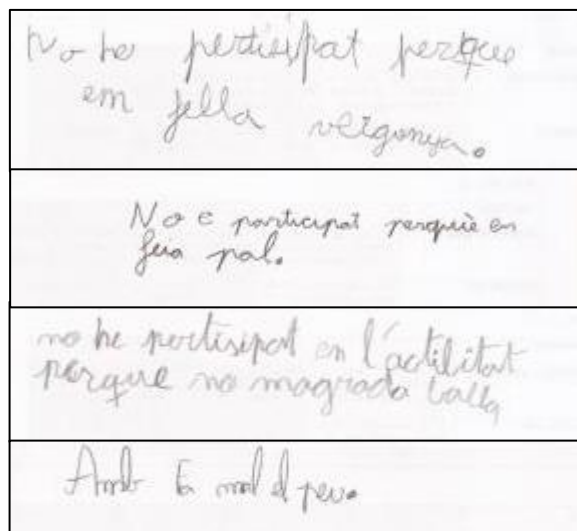 No he pertisipat perque
em fella veigonya.
No e participat perquè en
feia pal.
no he portisipat en l'actilitat
perque no magrada balla
Amb fa mal el peu.